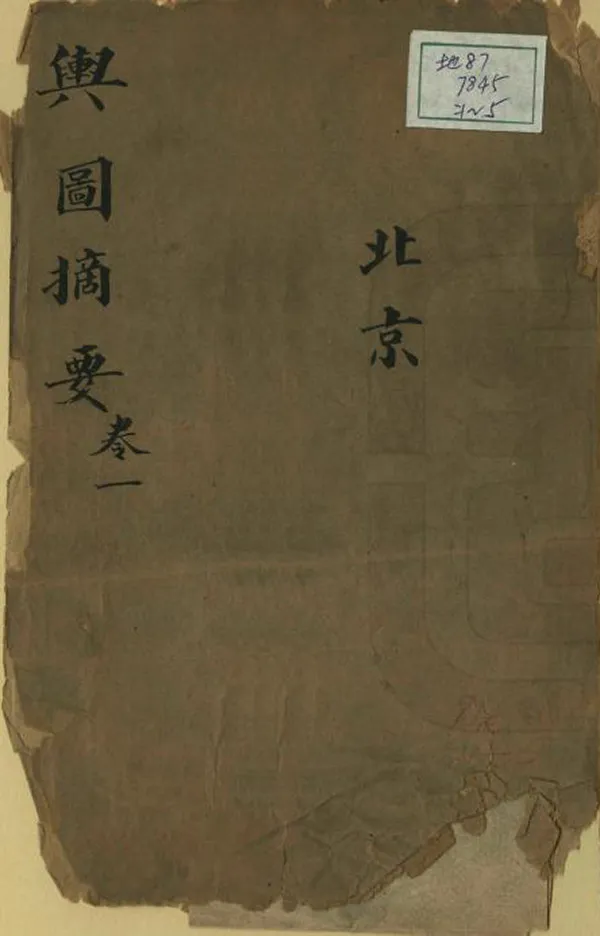 地87
7845
北京
輿圖摘要
卷一